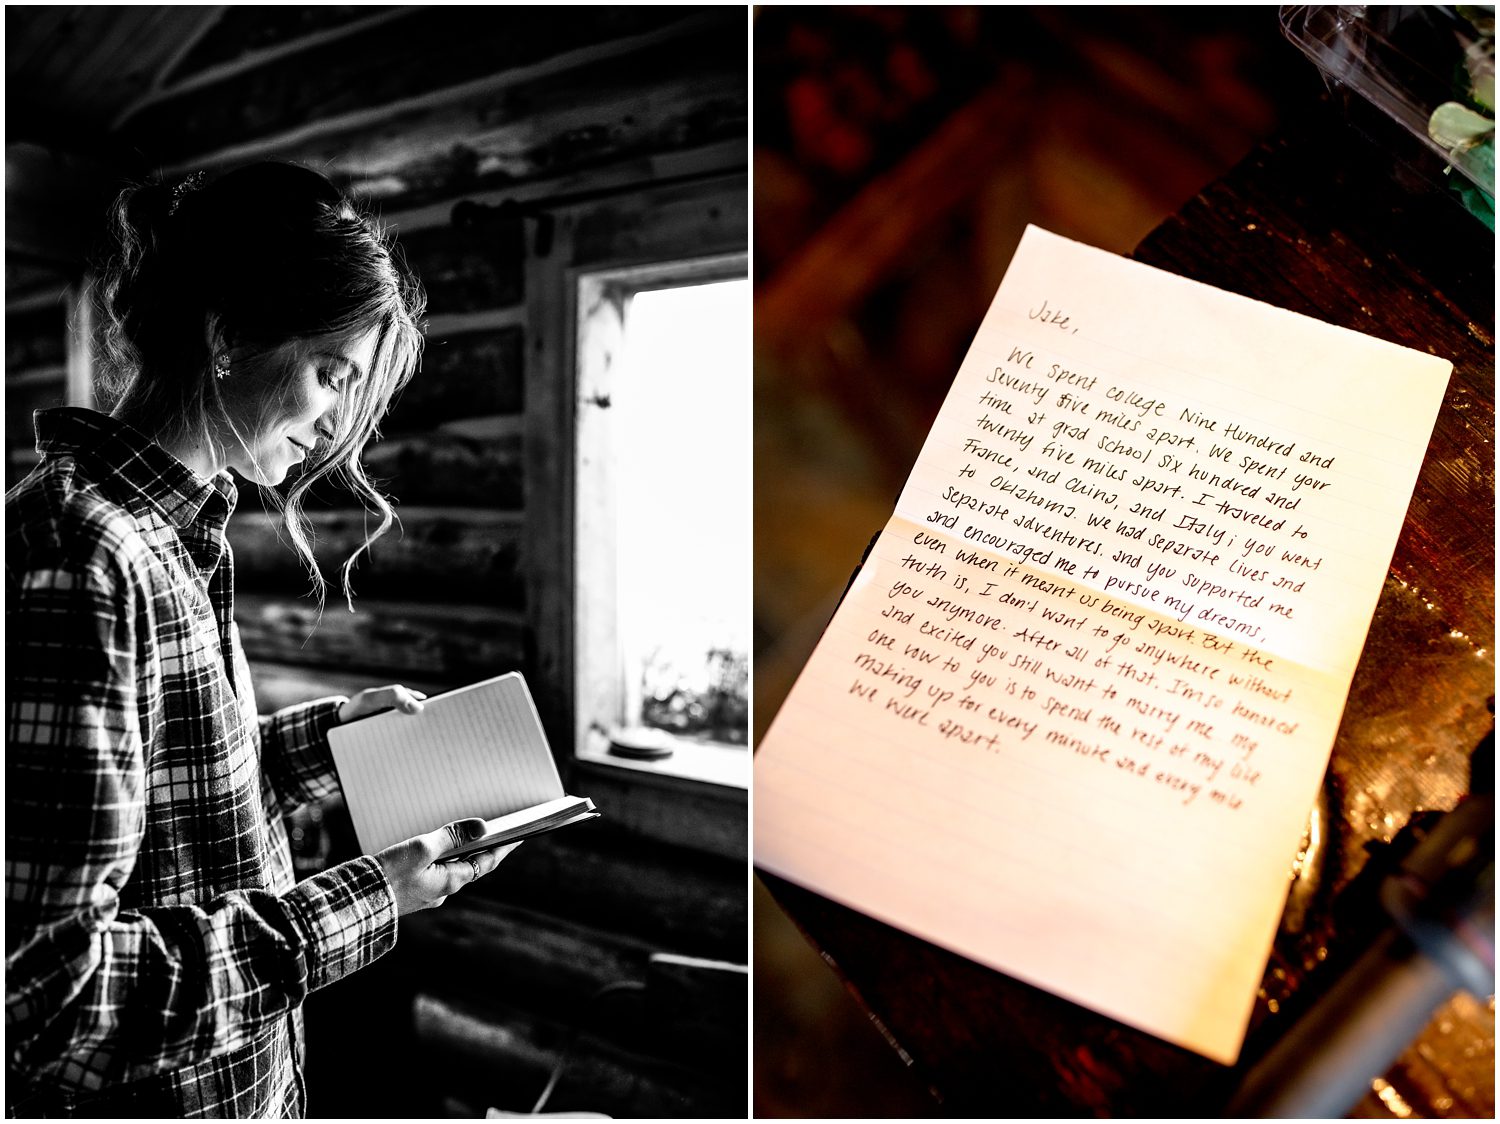 Jake,
We spent college Nine Hundred and
seventy five miles apart. We spent your
time at grad school six hundred and
twenty five miles apart. I traveled to
France, and China, and Italy; you went
to Oklahoma. We had separate lives and
separate adventures, and you supported me
and encouraged me to pursue my dreams,
even when it meant us being apart. But the
truth is, I don't want to go anywhere without
you anymore. After all of that, I'm so honored
and excited you still want to marry me. My
one vow to you is to spend the rest of my life
making up for every minute and every mile
we were apart.